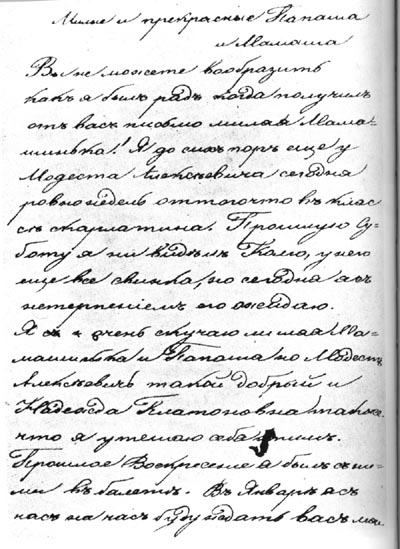 Милые и прекрасные Папаша
и Мамаша
Вы не можете вообразить
какъ я былъ радъ когда получилъ
отъ васъ письмо милая Мама-
шинька! Я до сихъ поръ еще у
Модеста Алексѣевича сегодня
ровно недѣль оттого что въ клас
сѣ скарлатина. Прошлую Су-
боту я ни видѣлъ Колю, у него
еще все свинка, но сегодня я съ
нетерпеніемъ его ожидаю.
Я очень скучаю милая Ма-
машинька и Папаша но Модестъ
Алексѣевичъ такой добрый и
Надежда Платоновна также
что я утешаю себя этимъ.
Прошлое Воскресение я былъ съ ни-
ми въ балетѣ. Въ Январѣ я съ
часъ на часъ буду ждать васъ мои